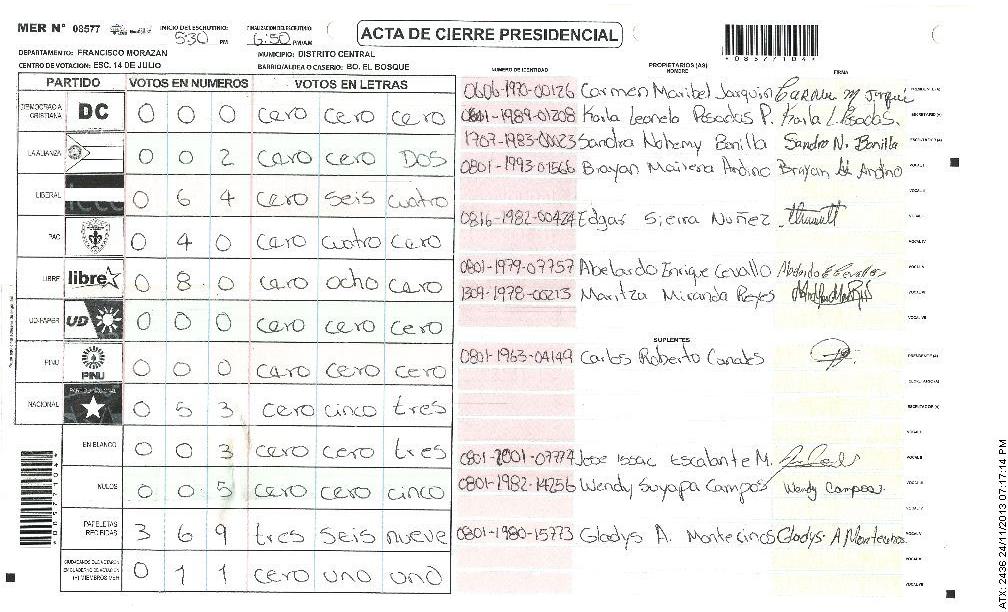 MER N° 08577
INICIO DEL ESCRUTINIO:
5:30 PM
FINALIZACION DEL ESCRUTINIO
6:50 PM/AM
ACTA DE CIERRE PRESIDENCIAL
*08577104*
DEPARTAMENTO: FRANCISCO MORAZAN
MUNICIPIO: DISTRITO CENTRAL
CENTRO DE VOTACION: ESC. 14 DE JULIO
BARRIO/ALDEA O CASERIO: BO. EL BOSQUE
PARTIDO VOTOS EN NUMEROS VOTOS EN LETRAS
DEMOCRACIA CRISTIANA DC 0 0 0 cero cero cero
LA ALIANZA 0 0 2 cero cero DOS
LIBERAL 0 6 4 cero seis cuatro
PAC 0 4 0 cero cuatro cero
LIBRE libre 0 8 0 cero ocho cero
UD-FAPER UD 0 0 0 cero cero cero
PINU PINU 0 0 0 cero cero cero
NACIONAL 0 5 3 cero cinco tres
EN BLANCO 0 0 3 cero cero tres
NULOS 0 0 5 cero cero cinco
PAPELETAS RECIBIDAS 3 6 9 tres seis nueve
CIUDADANOS QUE VOTARON
EN CUADERNO DE VOTACION
(+) MIEMBROS MER 0 1 1 cero uno uno
NUMERO DE IDENTIDAD
PROPIETARIOS (AS)
NOMBRE
FIRMA
0606-1970-00126 Carmen Maribel Jarquin PRESIDENTE (A)
0801-1989-01208 Karla Leonela Posadas P. Karla L. Posadas. SECRETARIO (A)
1707-1983-00023 Sandra Nohemy Bonilla Sandra N. Bonilla
0801-1993-01566 Brayan Mairena Andino Brayan Andino VOCAL I
VOCAL II
0816-1982-00424 Edgar Sierra Nuñez
VOCAL IV
0801-1979-07757 Abelardo Enrique Cevallo
1309-1978-00213 Maritza Miranda Reyes
VOCAL VII
SUPLENTES
0801-1963-04149 Carlos Roberto Canales PRESIDENTE (A)
SECRETARIO (A)
ESCRUTADOR (A)
VOCAL I
0801-2001-07774 Jose Issac Escalante M. VOCAL II
0801-1982-14256 Wendy Suyapa Campos Wendy Campos
0801-1980-15773 Gladys A. Montecinos Gladys A Montecinos
VOCAL VII
ATX: 2436 24/11/2013 07:17:14 PM